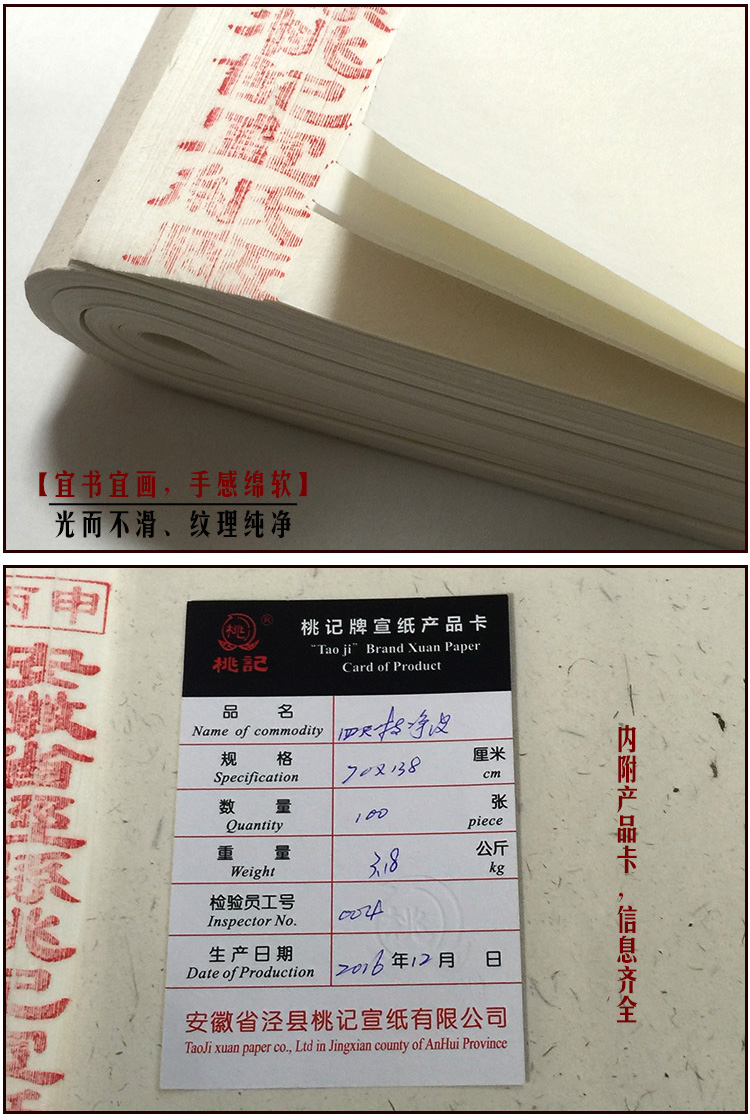 桃记宣纸厂
【宜书宜画，手感绵软】
光而不滑、纹理纯净
丙申
安徽省泾县桃记宣
桃
®
桃記
桃记牌宣纸产品卡
“Tao ji” Brand Xuan Paper
Card of Product
品 名
Name of commodity
四尺特净皮
规 格
Specification
70x138
厘米
cm
数 量
Quantity
100
张
piece
重 量
Weight
3.8
公斤
kg
检验员工号
Inspector No.
004
桃
生产日期
Date of Production
2016年12月 日
安徽省泾县桃记宣纸有限公司
TaoJi xuan paper co., Ltd in Jingxian county of AnHui Province
内附产品卡，信息齐全